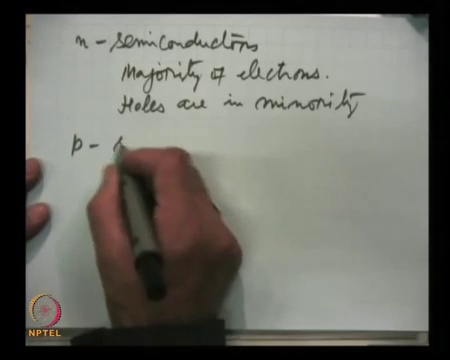 n - semiconductors
Majority of electrons.
Holes are in minority
p - s
NPTEL